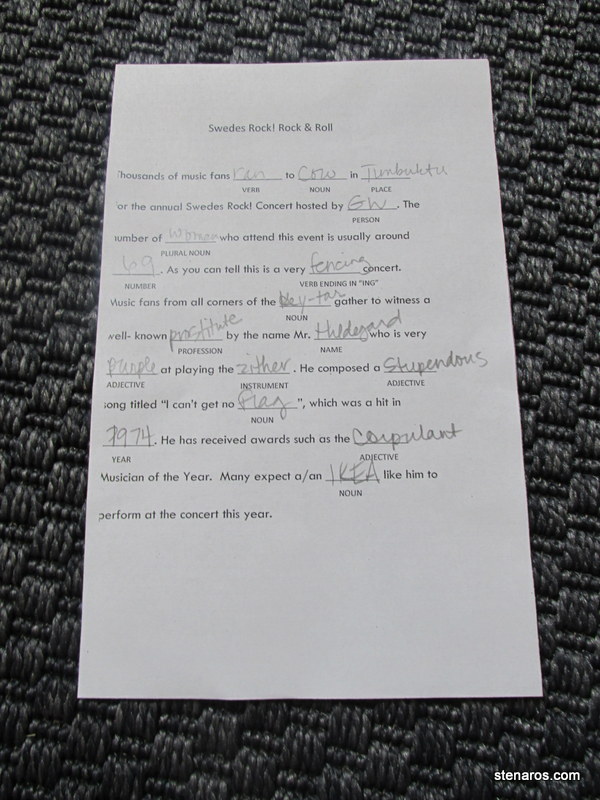 Swedes Rock! Rock & Roll
Thousands of music fans ran to Cow in Timbuktu
VERB NOUN PLACE
or the annual Swedes Rock! Concert hosted by GW. The
PERSON
number of women who attend this event is usually around
PLURAL NOUN
. As you can tell this is a very fencing concert.
NUMBER VERB ENDING IN "ING"
Music fans from all corners of the key-tar gather to witness a
NOUN
well- known prostitute by the name Mr. Hildegard who is very
PROFESSION NAME
purple at playing the zither. He composed a Stupendous
ADJECTIVE INSTRUMENT ADJECTIVE
song titled "I can't get no Flag", which was a hit in
NOUN
7974. He has received awards such as the Corpulant
YEAR ADJECTIVE
Musician of the Year. Many expect a/an IKEA like him to
NOUN
perform at the concert this year.
stenaros.com